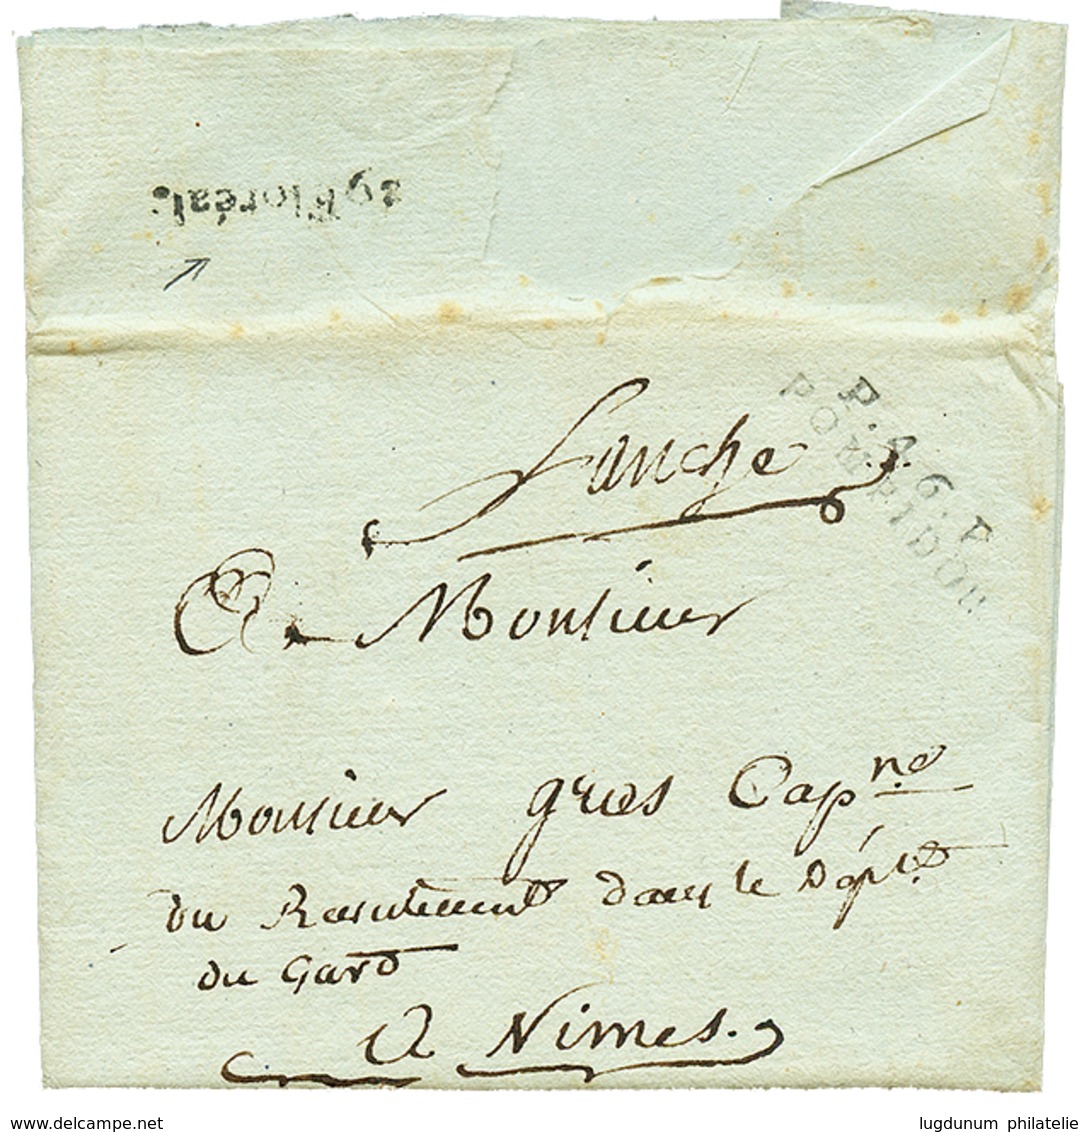 29 Floréal.
P.46.P
POMPIDOU
franche
A Monsieur
Monsieur gros Capne
du Recrutement dans le Dépt
du Gard
A Nimes.
www.delcampe.net
lugdunum philatelie